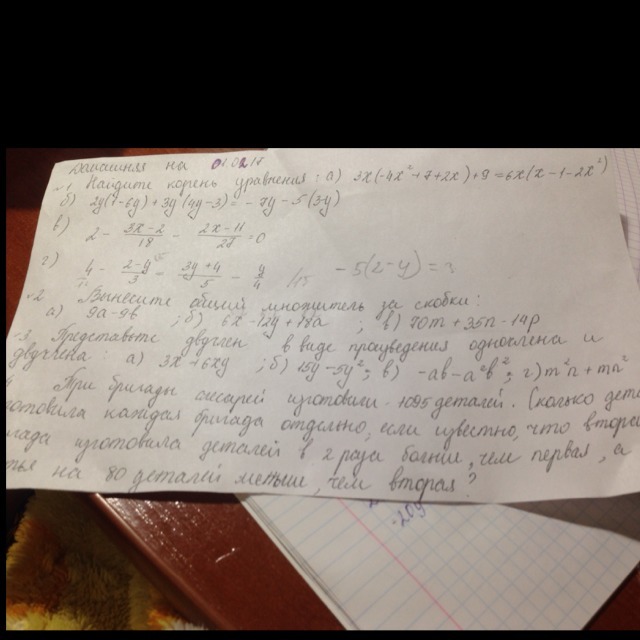 Домашняя на 01.02.17
№1. Найдите корень уравнения: а) 3x(-4x²+7+2x)+9=6x(x-1-2x²)
б) 2y(1-6y)+3y(4y-3)=-7y-5(3y)
в) 2 - (3x-2)/18 - (2x-11)/27 = 0
г) 4 - (2-y)/3 = (2y+4)/5 - y/4 -5(2-y)=
№2. Вынесите общий множитель за скобки:
а) 9a-9b ; б) 6x-12y+18a ; в) 70m+35n-14p
3. Представьте двучлен в виде произведения одночлена и
двучлена: а) 3x+6xy ; б) 15y-5y²; в) -ab-a²b²; г) m²n+mn²
При бригады слесарей изготовили 1095 деталей. Сколько
каждая бригада отдельно, если известно, что
изготовила деталей в 2 раза больше, чем первая, а
на 80 деталей меньше, чем вторая?